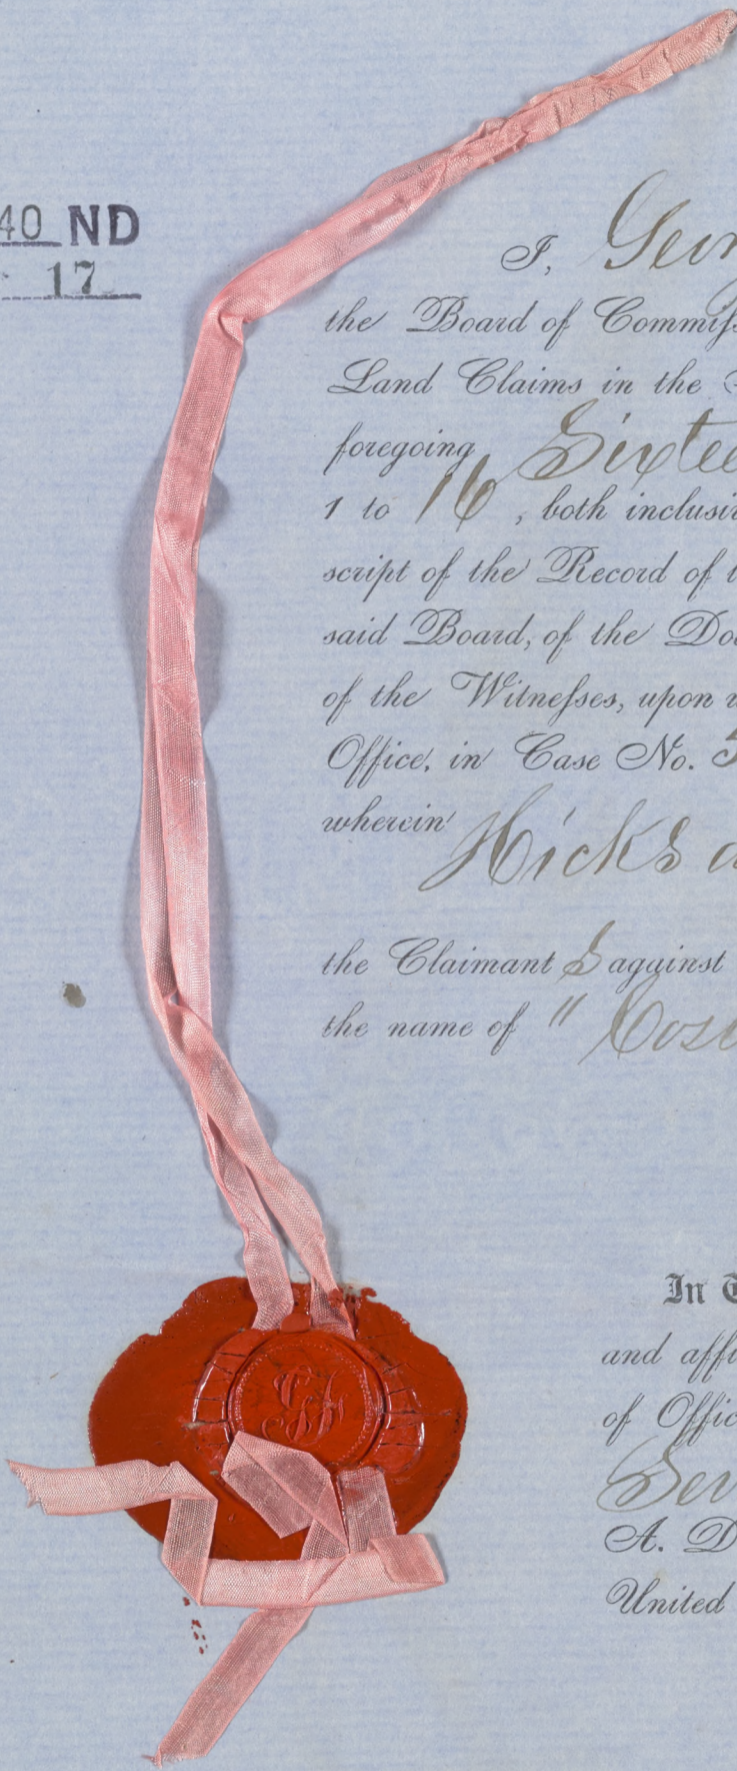 40 ND
17
I, Geor
the Board of Commiss
Land Claims in the S
foregoing Sixtee
1 to 16, both inclusiv
script of the Record of t
said Board, of the Do
of the Witnesses, upon w
Office, in Case No. 5
wherein
Hicks a
the Claimant s against
the name of "Cos
In T
and affi
of Offic
Se
A. D
United